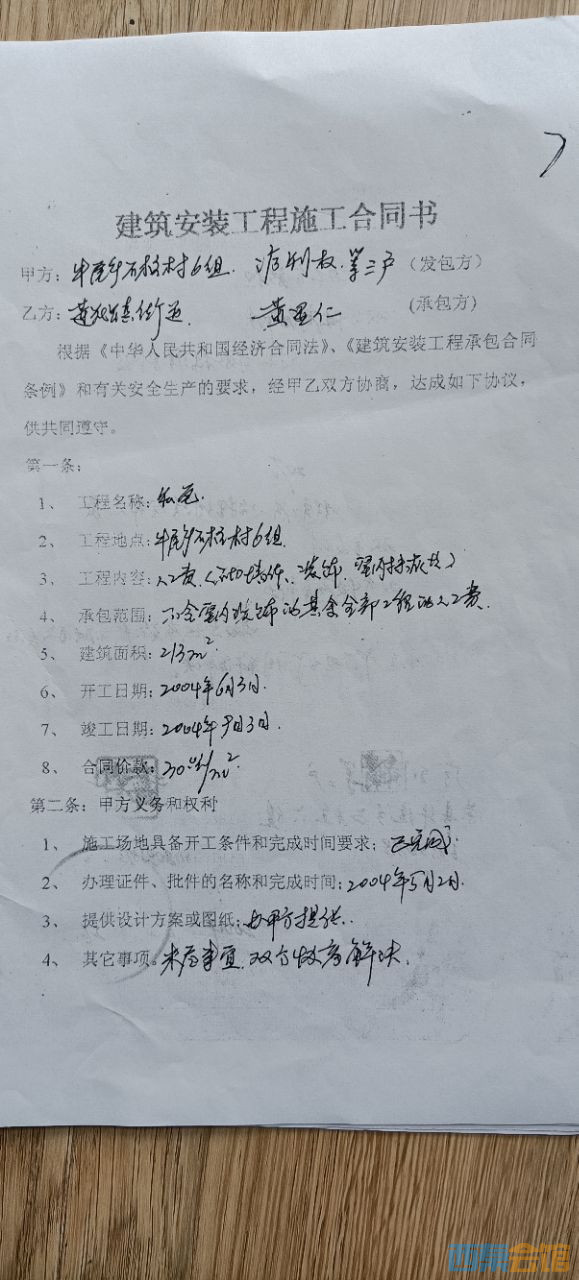 建筑安装工程施工合同书
甲方：石柱村6组. 第三户（发包方）
乙方：街道 黄显仁 (承包方)
根据《中华人民共和国经济合同法》、《建筑安装工程承包合同
条例》和有关安全生产的要求，经甲乙双方协商，达成如下协议，
供共同遵守。
第一条：
1、 工程名称：私宅.
2、 工程地点：石柱村6组.
3、 工程内容：人工费
4、 承包范围：不含室内装饰的其余全部工程的人工费.
5、 建筑面积：213m².
6、 开工日期：2004年6月3日.
7、 竣工日期：2004年9月3日.
8、 合同价款：30元/m².
第二条：甲方义务和权利
1、 施工场地具备开工条件和完成时间要求；已完成.
2、 办理证件、批件的名称和完成时间：2004年5月2日.
3、 提供设计方案或图纸：由甲方提供.
4、 其它事项。未尽事宜.双方协商解决.
西祠会馆